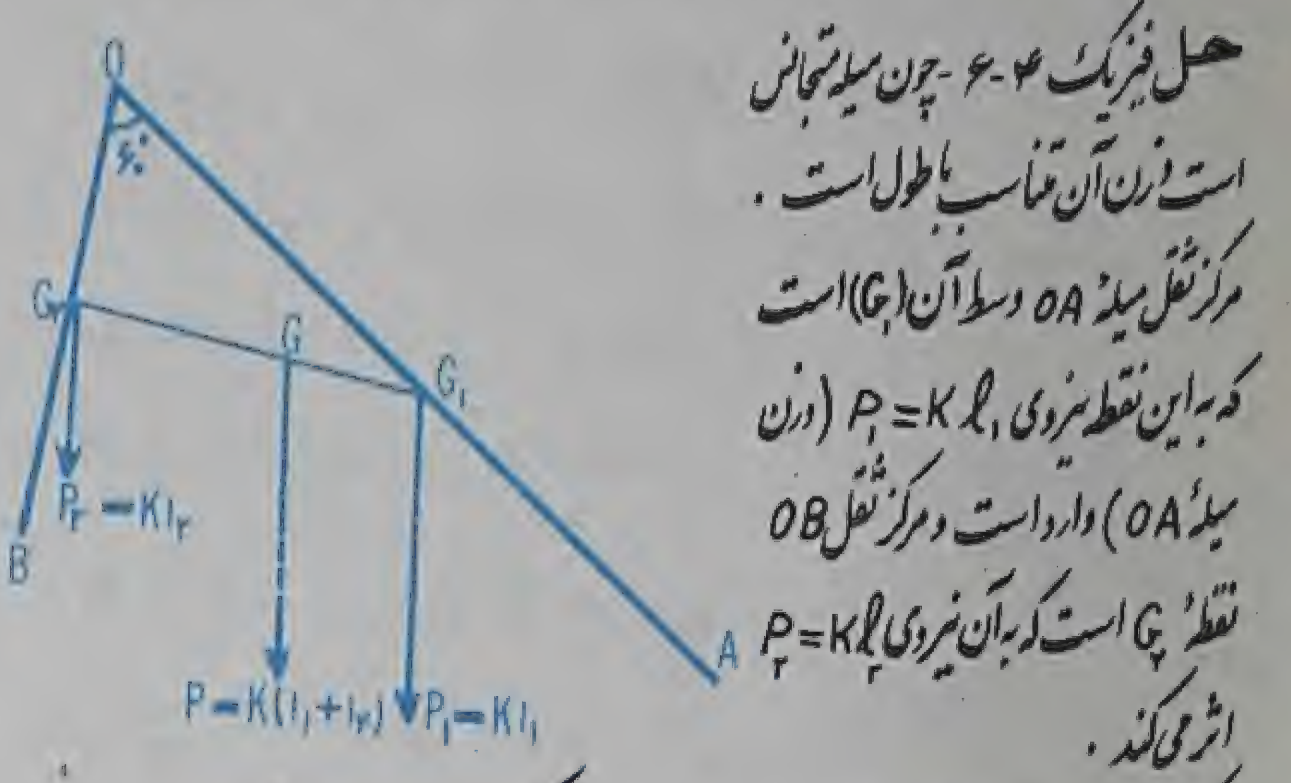 حل فیزیک ۴-۶- چون میله متجانس
است وزن آن متناسب با طول است .
مرکز ثقل میلهٔ OA وسط آن (G۱) است
که به این نقطه نیروی P۱ = Kl۱ (وزن
میلهٔ OA) وارد است و مرکز ثقل OB
نقطهٔ G۲ است که به آن نیروی P۲ = Kl۲
اثر می‌کند .
O
۶۰°
G۲
G
G۱
P۲ = Kl۲
B
A
P = K(l۱ + l۲)
P۱ = Kl۱